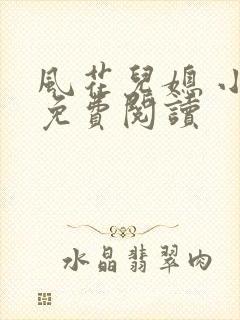 風花兒媳小
免費閱讀
水晶翡翠肉